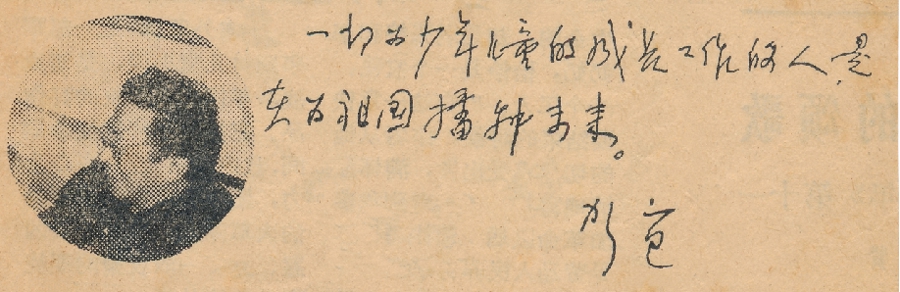 一切为少年儿童的成长工作的人,是
在为祖国播种未来。